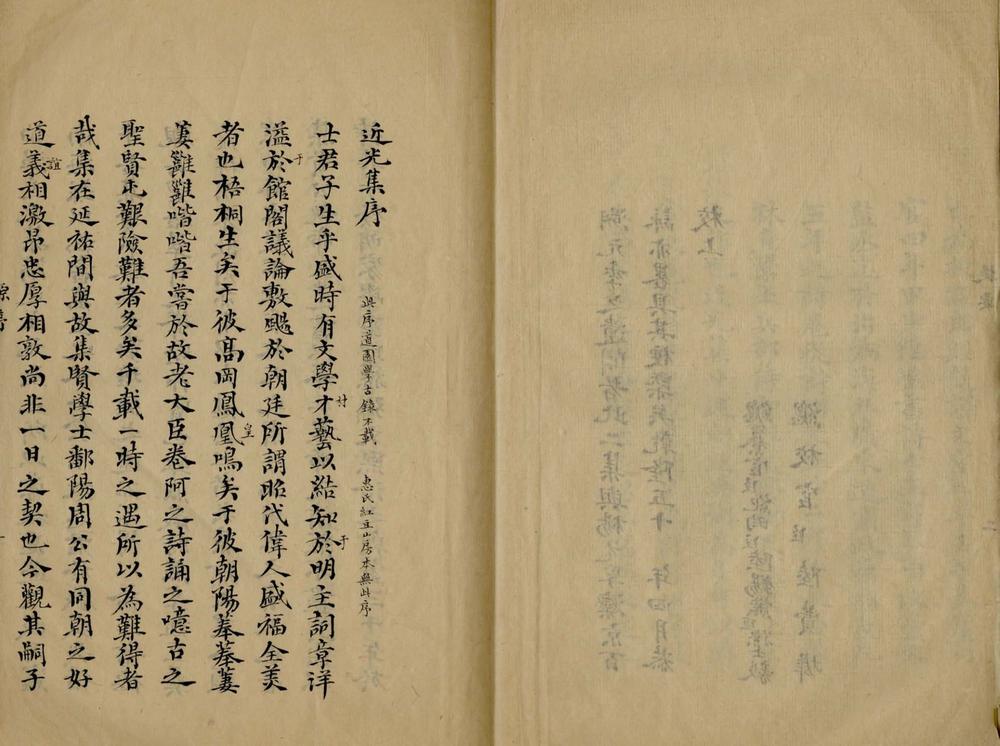 近光集序
此序道園學古錄不載　惠氏紅豆山房本無此序
士君子生乎盛時有文學才藝以結知於明主詞章洋
于
溢於館閣議論敷颺於朝廷所謂昭代偉人盛福全美
于
者也梧桐生矣于彼高岡鳳凰鳴矣于彼朝陽菶菶萋
皇
萋雝雝喈喈吾嘗於故老大臣卷阿之詩誦之噫古之
聖賢屯艱險難者多矣千載一時之遇所以為難得者
哉集在延祐間與故集賢學士鄱陽周公有同朝之好
誼
道義相激昂忠厚相敦尚非一日之契也今觀其嗣子